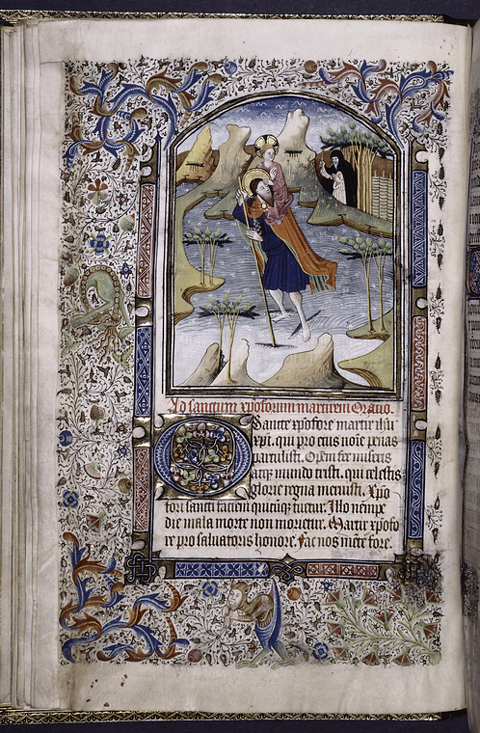 Ad sanctum xpoforum martirem Oratio.
Sancte xpofore martir ihu
xpi. qui pro eius noīe penas
partulisti. Opem fer miseris
atqꝫ mundo tristi. qui celestis
glorie regna meruisti. Xpo
fori sancti faciem quicūqꝫ tuetur. Illo nempe
die mala morte non morietur. Martir xpofo
re pro salvatoris honore. Fac nos mēte fore.